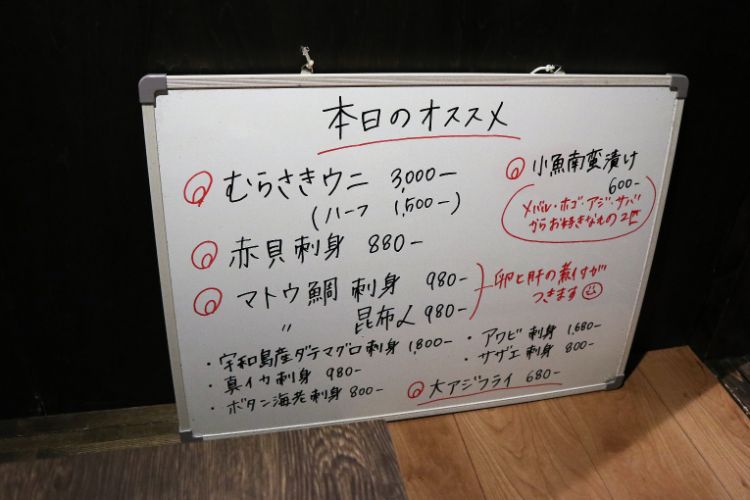 本日のオススメ
むらさきウニ 3,000-
(ハーフ 1,500-)
赤貝刺身 880-
マトウ鯛 刺身 980-
〃 昆布〆 980-
卵と肝の煮付けが
つきます
・宇和島産ダテマグロ刺身 1,800-
・真イカ刺身 980-
・ボタン海老刺身 800-
小魚南蛮漬け
600-
(メバル・ホゴ・アジ・サバ
からお好きなもの2匹)
・アワビ刺身 1,680-
・サザエ刺身 800-
大アジフライ 680-